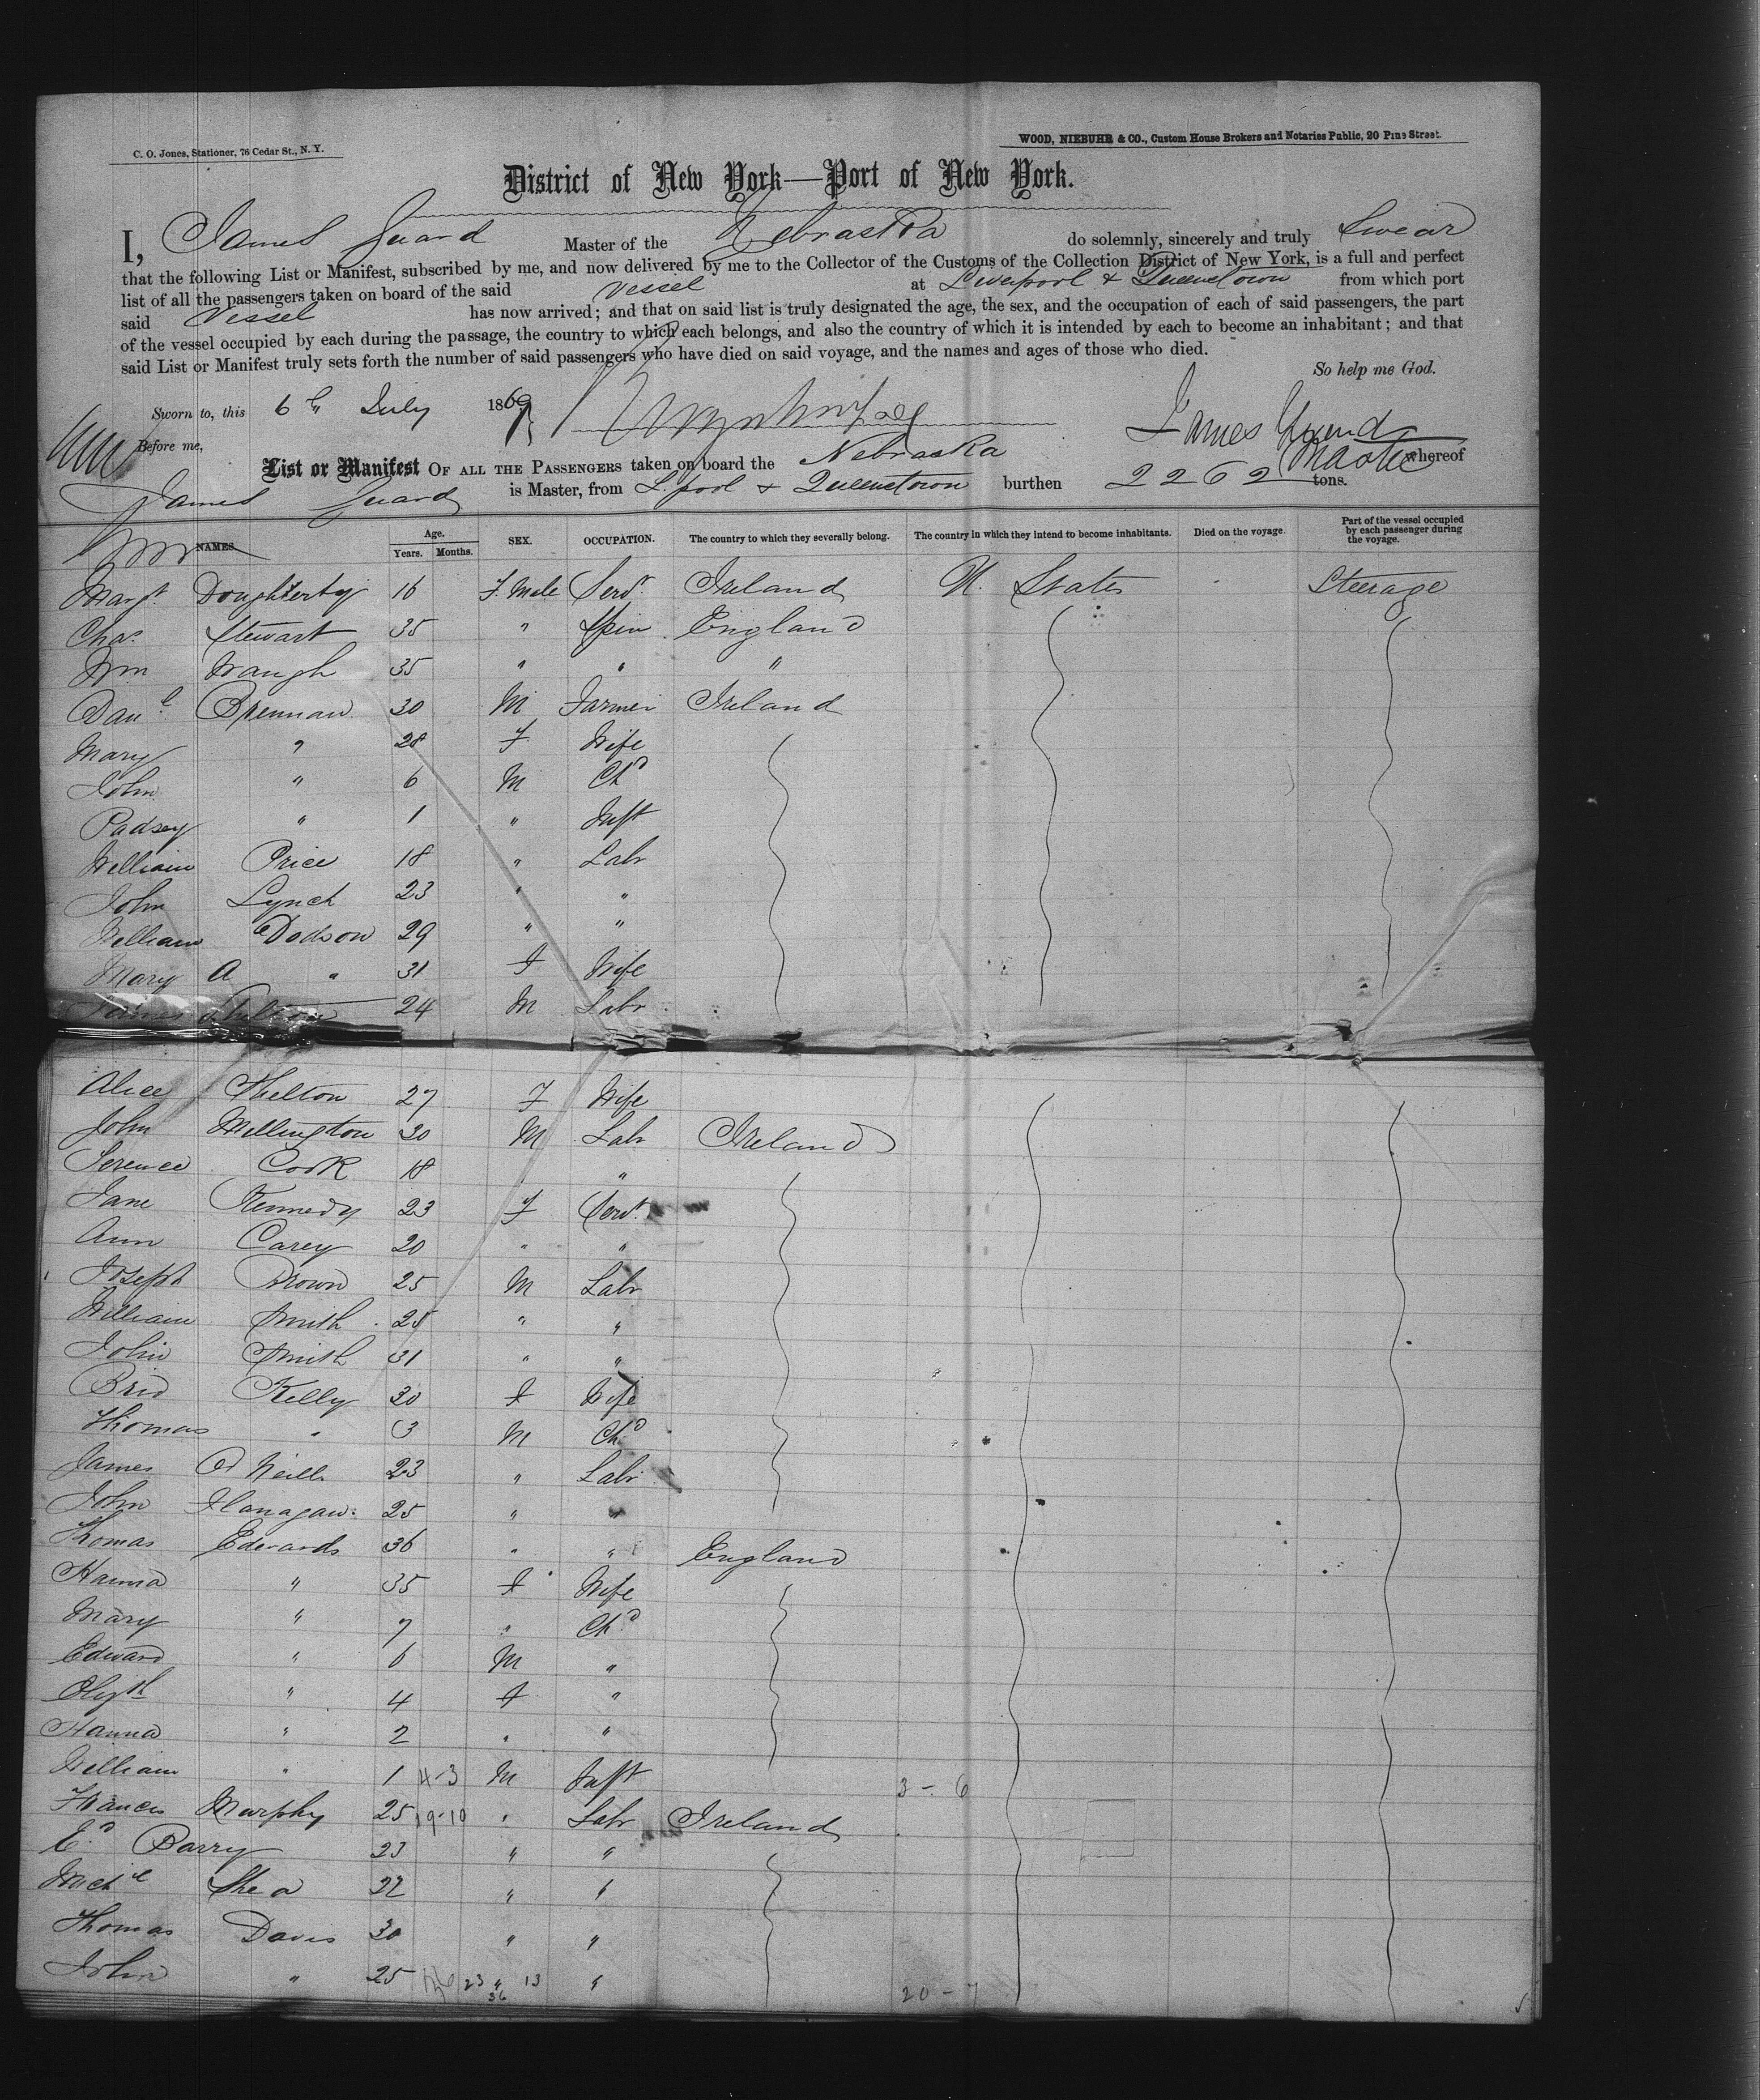 C. O. Jones, Stationer, 76 Cedar St., N. Y.
WOOD, NIEBUHR & CO., Custom House Brokers and Notaries Public, 20 Pine Street.
District of New York—Port of New York.
I, James Guard Master of the Nebraska do solemnly, sincerely and truly Swear
that the following List or Manifest, subscribed by me, and now delivered by me to the Collector of the Customs of the Collection District of New York, is a full and perfect
list of all the passengers taken on board of the said Vessel at Liverpool & Queenstown from which port
said Vessel has now arrived; and that on said list is truly designated the age, the sex, and the occupation of each of said passengers, the part
of the vessel occupied by each during the passage, the country to which each belongs, and also the country of which it is intended by each to become an inhabitant; and that
said List or Manifest truly sets forth the number of said passengers who have died on said voyage, and the names and ages of those who died.
So help me God.
Sworn to, this 6th July 1869
James Guard
Before me,
Master
List or Manifest OF ALL THE PASSENGERS taken on board the Nebraska whereof
James Guard is Master, from L.pool & Queenstown burthen 2262 tons.
NAMES. Age. Years. Months. SEX. OCCUPATION. The country to which they severally belong. The country in which they intend to become inhabitants. Died on the voyage. Part of the vessel occupied by each passenger during the voyage.
Margt. Doughterty 16 F. Male Servt. Ireland U. States Steerage
Chas. Stewart 35 " Spin England
Wm Waugh 35 " " "
Danl. Brennan 30 M Farmer Ireland
Mary " 28 F Wife
John " 6 M Chd
Padsey " 1 " Inft
William Price 18 " Labr
John Lynch 23 " "
William Dodson 29 " "
Mary A " 31 F Wife
James 24 M Labr
Alice Shelton 27 F Wife
John Wellington 30 M Labr Ireland
Terence Cook 18 "
Jane Kennedy 23 F Servt.
Ann Carey 20 " "
Joseph Brown 25 M Labr
William Smith 25 " "
John Smith 31 " "
Brid Kelly 30 F Wife
Thomas " 3 M Chd
James O Neill 23 " Labr
John Flanagan 25 " "
Thomas Edwards 36 " " England
Hanna " 35 F Wife
Mary " 7 " Chd
Edward " 6 M "
Elizth " 4 F "
Hanna " 2 " "
William " 1 4-3 M Inft 3-6
Francis Murphy 25 19-10 " Labr Ireland
Ed. Barry 23 " "
Michl Shea 22 " "
Thomas Davis 30 " "
John " 25 23 13 " " 36 20-7